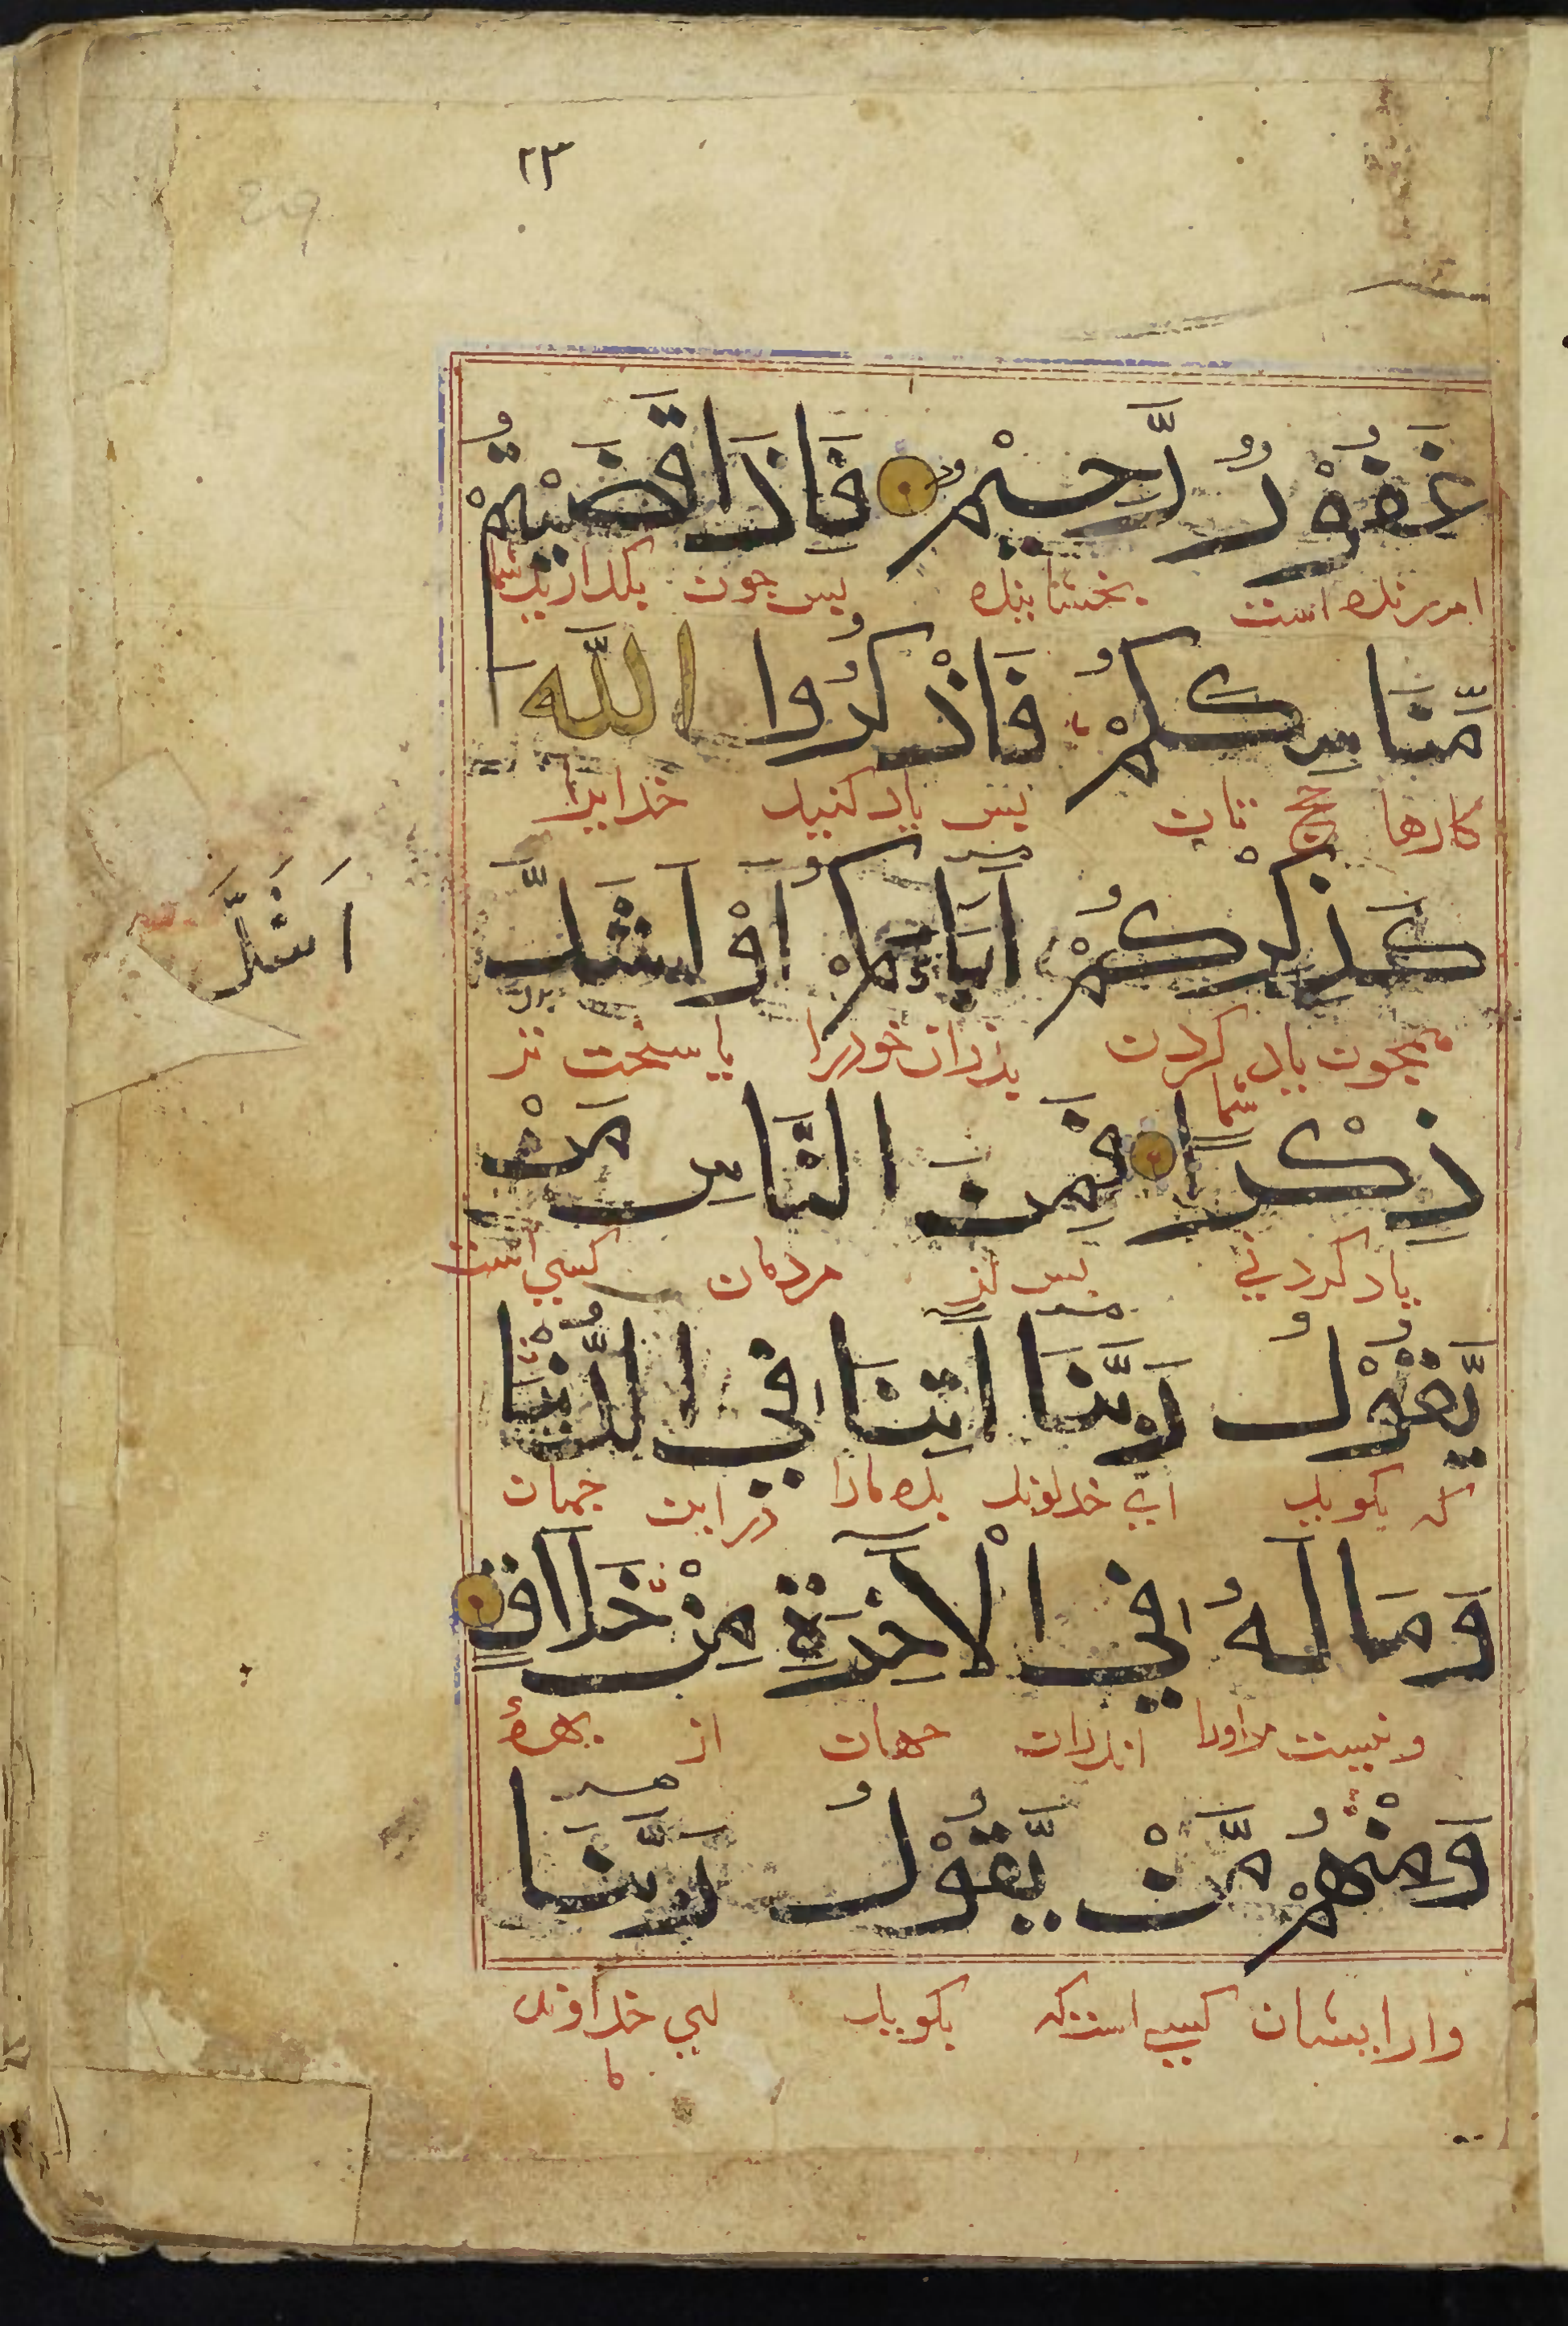 ٢٣
غَفُوْرٌ رَّحِيْمٌ فَاِذَا قَضَيْتُمْ
امرزنده است بخشاینده پس چون بگذارید شما
مَّنَاسِكَكُمْ فَاذْكُرُوا اللّٰهَ
کارها حج تان پس یاد کنید خدایرا
كَذِكْرِكُمْ آبَاءَكُمْ اَوْ اَشَدَّ
اَشَدَّ
همچون یاد کردن شما پدران خود را یا سخت تر
ذِكْرًا فَمِنَ النَّاسِ مَنْ
یاد کردنی پس از مردمان کسی است
يَّقُوْلُ رَبَّنَا اٰتِنَا فِي الدُّنْيَا
که بگوید ای خداوند بده مارا در این جهان
وَمَا لَهُ فِي الْاٰخِرَةِ مِنْ خَلَاقٍ
و نیست مراورا اندران جهان از بهرهٔ
وَمِنْهُمْ مَّنْ يَّقُوْلُ رَبَّنَا
و از ایشان کسی است که بگوید ای خداوند ما